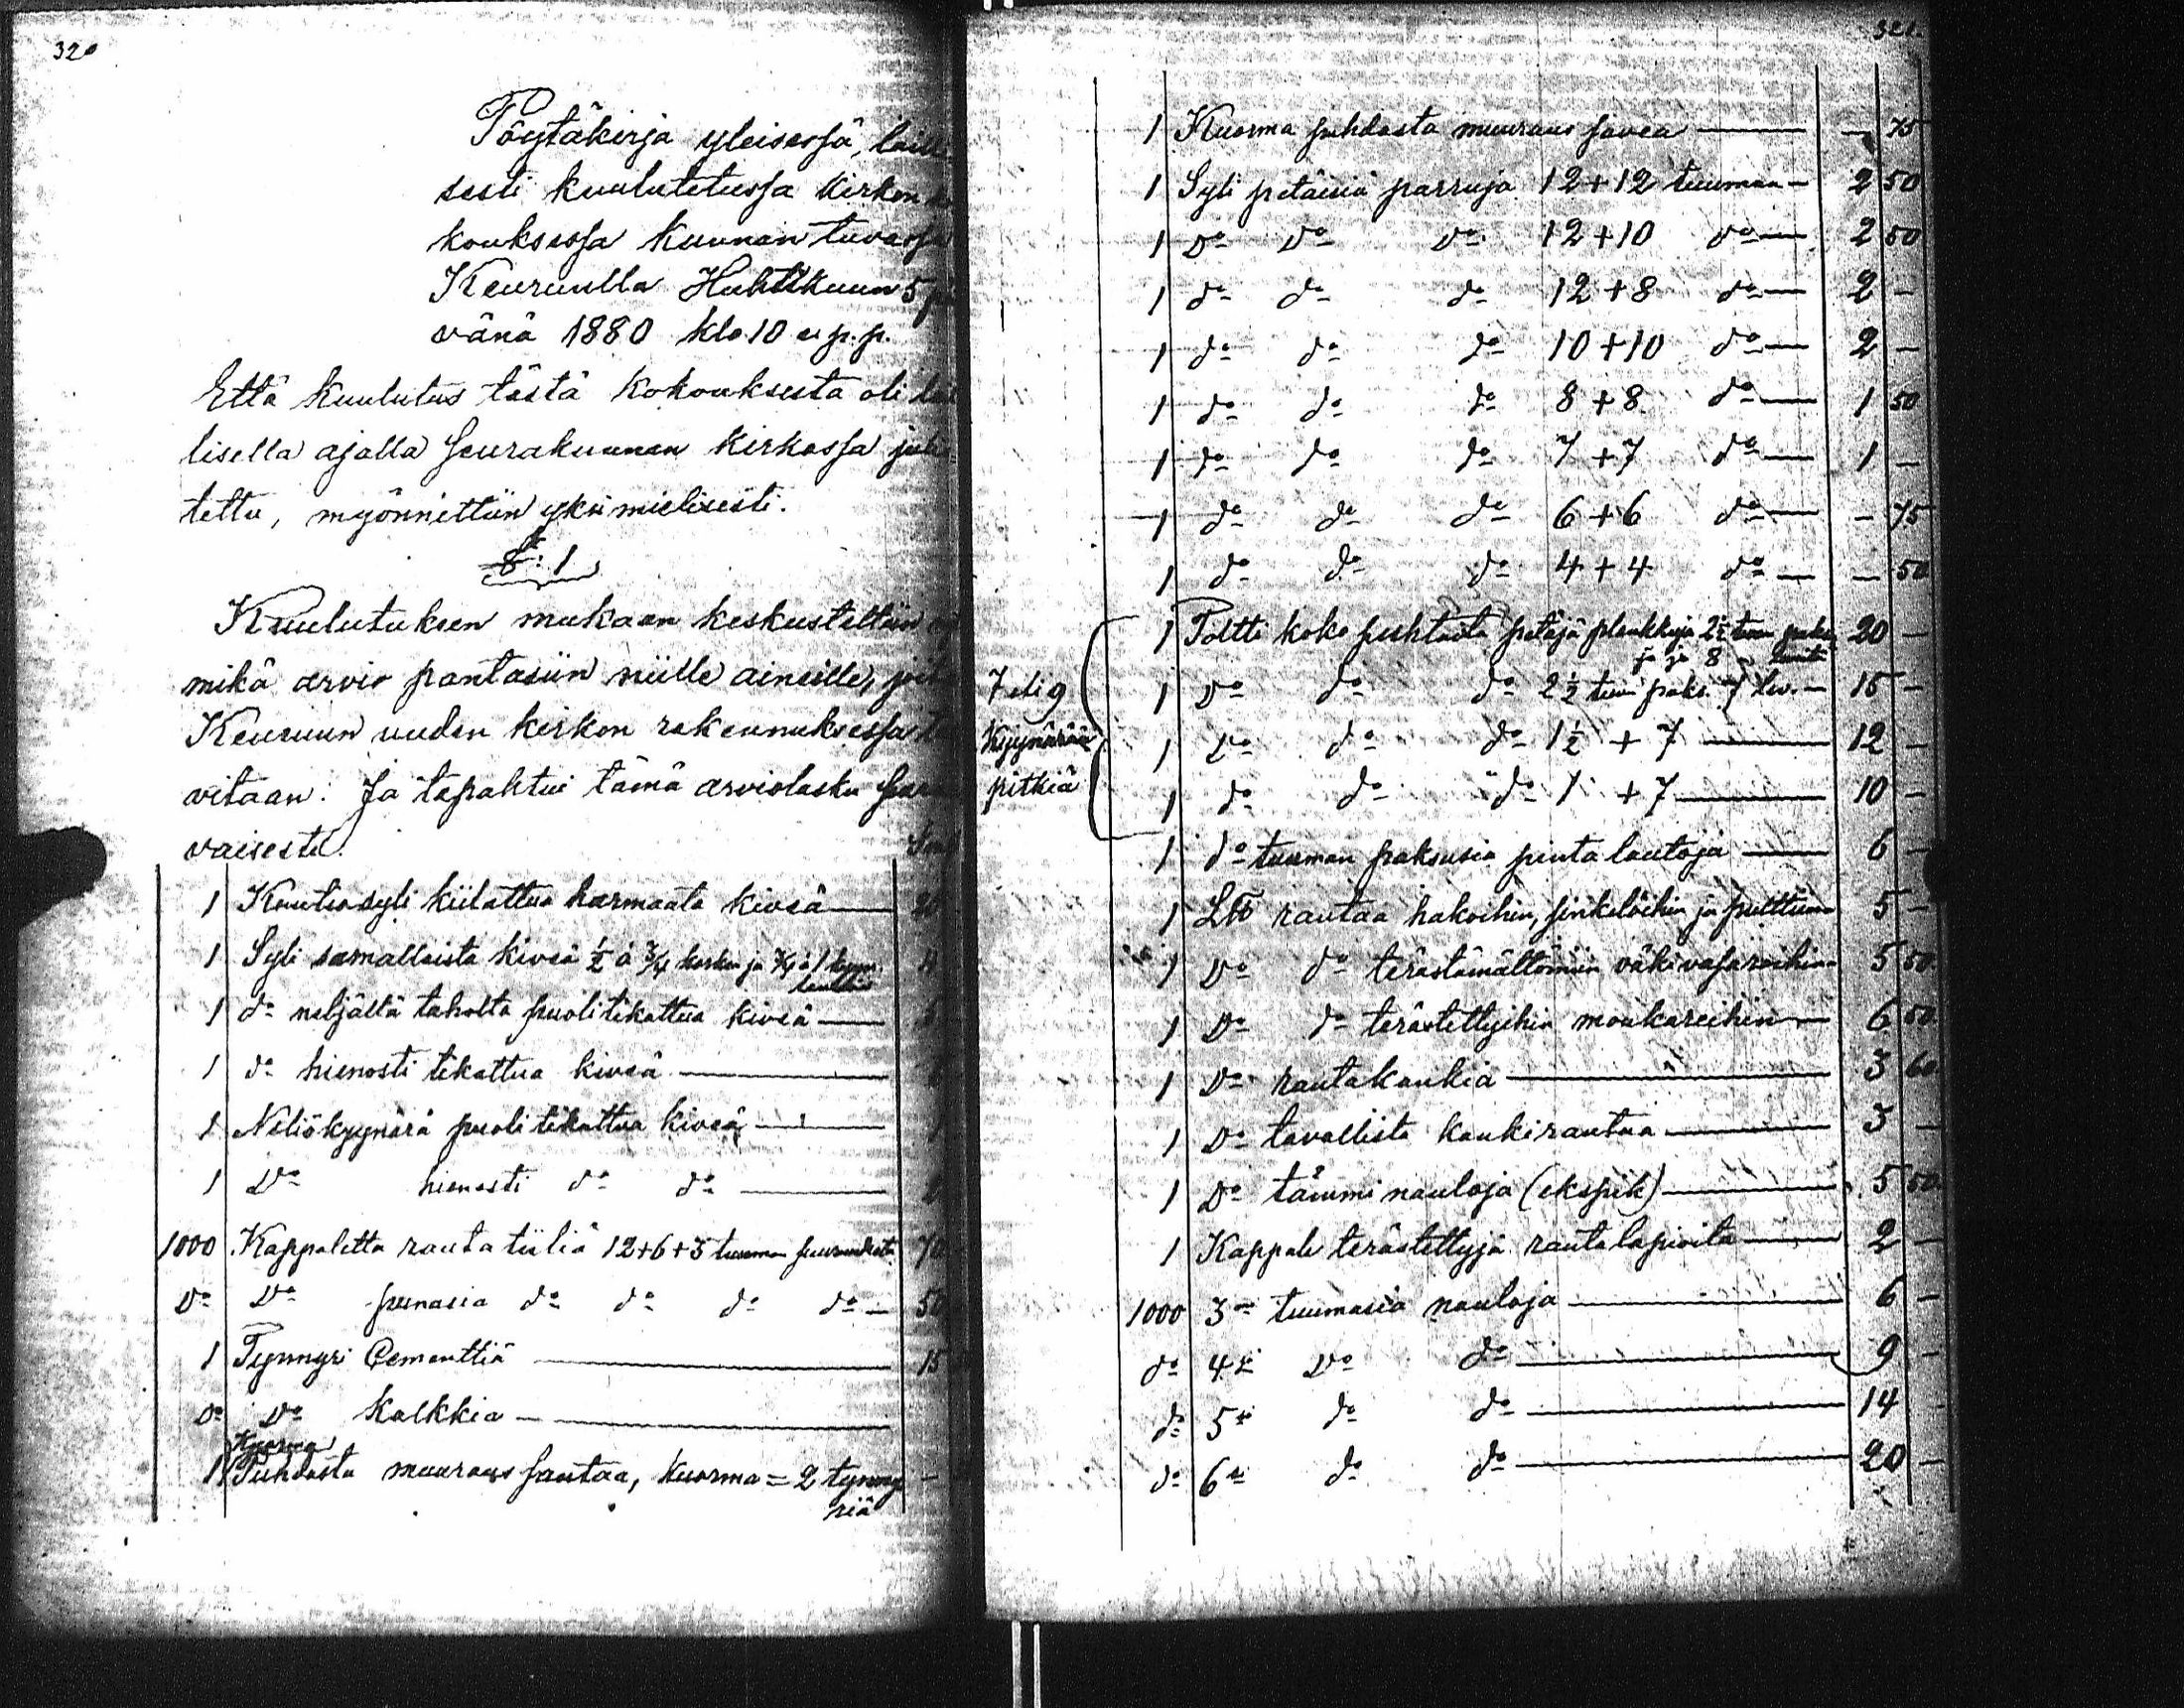 320
Pöytäkirja yleisessä, lail-
sesti kuulutetussa kirkon
kouksessa kunnan tuvassa
Keuruulla Huhtikuun 5
vänä 1880 klo 10 e. p. p.
Että kuulutus tästä kokouksesta oli
lisella ajalla seurakunnan kirkossa julis-
tettu, myönnettiin yksimielisesti.
§: 1
Kuulutuksen mukaan keskusteltiin
mikä arvio pantasiin niille aineille,
Keuruun uuden kirkon rakennuksessa
vitaan. Ja tapahtui tämä arviolasku
vaisesti.
1 Kuutiosyli kiilattua harmaata kiveä — 20
1 Syli samallaista kiveä ½ à ¾ korkea ja ¾ à 1 kyyn.
1 do neljältä taholta puolitekattua kiveä —
1 do hienosti tekattua kiveä —
1 Neliökyynärä puolitekattua kiveä —
1 Do hienosti do do —
1000 Kappaletta rauta tiiliä 12+6+3 tuuman suuruudesta 70
Do Do punasia do do do do — 50
1 Tynnyri Cementtiä — 15
Do Do Kalkkia —
Kuorma
1 Puhdasta muuraus santaa, kuorma = 2 tynny — –
riä
321.
1 Kuorma puhdasta muuraus savea — – 75
1 Syli petäisiä parruja 12+12 tuuman — 2 50
1 Do Do Do 12+10 Do — 2 50
1 do do do 12+8 do — 2 –
1 do do do 10+10 do — 2 –
1 do do do 8+8 do — 1 50
1 do do do 7+7 do — 1 –
1 do do do 6+6 do — – 75
1 do do do 4+4 do — – 50
1 Toltti koko puhtaita petäjä plankkuja 2½ tuum paksu 20 –
ja 8
7 eli 9
1 Do do do 2½ tuu paks. 7 lev. — 15 –
Kyynärää
1 Do do do 1½ + 7 — 12 –
pitkiä
1 do do do 1 + 7 — 10 –
1 do tuuman paksusia pinta lautoja — 6 –
1 L℔ rautaa hakoihin, sinkelöihin ja pulttiin 5 –
1 Do do terästämättömiin väkivasaroihin 5 50
1 Do do terästettyihin moukareihin — 6 50
1 Do rautakankia — 3 60
1 Do tavallista kankirautaa — 3 –
1 Do tämmi nauloja (ekspik) — 5 50
1 Kappale terästettyjä rautalapioita — 2 –
1000 3 tuumasia nauloja — 6 –
do 4 Do do — 9 –
do 5 do do — 14 –
do 6 do do — 20 –